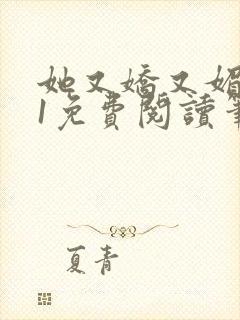 她又嬌又媚
1免費閱讀
夏青